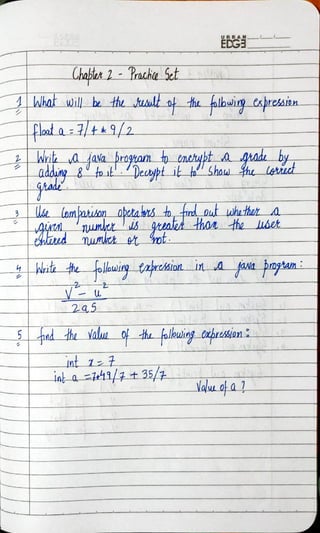 URBAN
EDGE
Chapter 2 - Practice Set
1 What will be the result of the following expression
float a = 7/4 * 9/2
2 Write a java program to encrypt a grade by
adding 8 to it. Decrypt it to show the correct
grade.
3 Use comparison operators to find out whether a
given number is greater than the user
entered number or not.
4 Write the following expression in a java program:
v² - u²
2as
5 find the value of the following expression:
int x = 7
int a = 7*49/7 + 35/7
Value of a ?